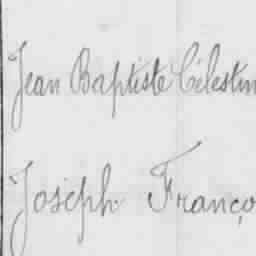 Jean Baptiste Célestin
Joseph Franço